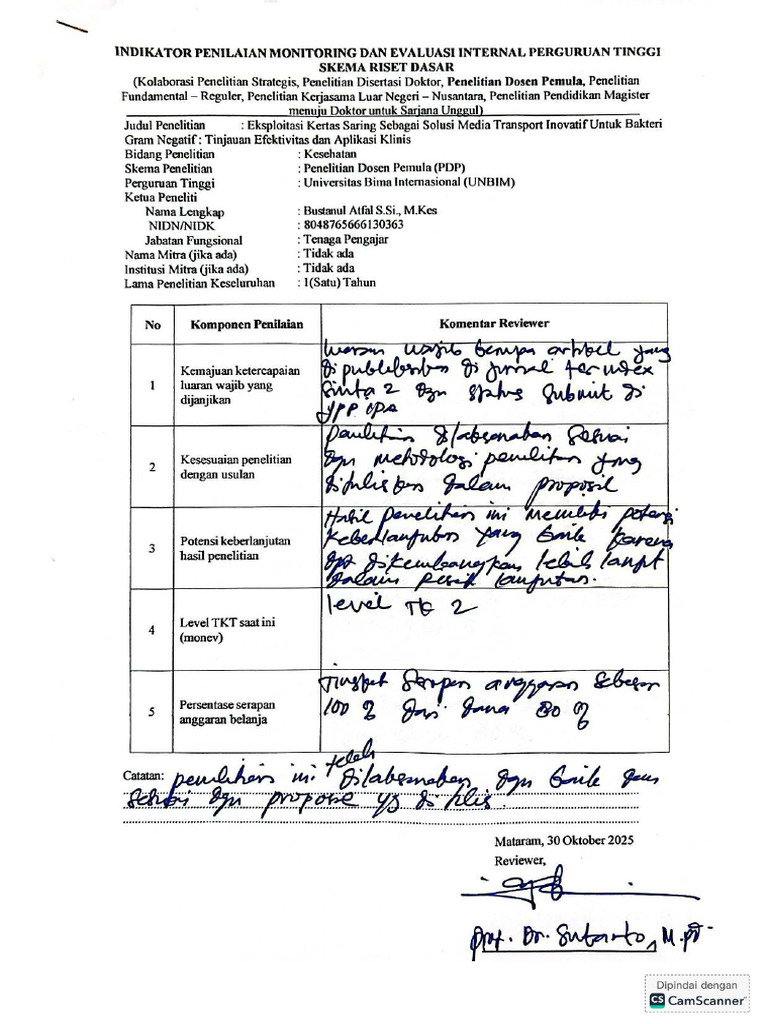 INDIKATOR PENILAIAN MONITORING DAN EVALUASI INTERNAL PERGURUAN TINGGI
SKEMA RISET DASAR
(Kolaborasi Penelitian Strategis, Penelitian Disertasi Doktor, Penelitian Dosen Pemula, Penelitian
Fundamental – Reguler, Penelitian Kerjasama Luar Negeri – Nusantara, Penelitian Pendidikan Magister
menuju Doktor untuk Sarjana Unggul)
Judul Penelitian : Eksploitasi Kertas Saring Sebagai Solusi Media Transport Inovatif Untuk Bakteri
Gram Negatif : Tinjauan Efektivitas dan Aplikasi Klinis
Bidang Penelitian : Kesehatan
Skema Penelitian : Penelitian Dosen Pemula (PDP)
Perguruan Tinggi : Universitas Bima Internasional (UNBIM)
Ketua Peneliti
Nama Lengkap : Bustanul Atfal S.Si., M.Kes
NIDN/NIDK : 8048765666130363
Jabatan Fungsional : Tenaga Pengajar
Nama Mitra (jika ada) : Tidak ada
Institusi Mitra (jika ada) : Tidak ada
Lama Penelitian Keseluruhan : 1(Satu) Tahun
No Komponen Penilaian Komentar Reviewer
1 Kemajuan ketercapaian luaran wajib yang dijanjikan
luaran wajib berupa artikel yang
di publikasikan di jurnal terindex
Sinta 2 dgn status submit di
2 Kesesuaian penelitian dengan usulan
penelitian dilaksanakan sesuai
dgn metodologi penelitian yang
dituliskan dalam proposil
3 Potensi keberlanjutan hasil penelitian
Hasil penelitian ini memiliki potensi
keberlanjutan yang baik karena
dpt dikembangkan lebih lanjut
dalam lanjutan.
4 Level TKT saat ini (monev)
level 2
5 Persentase serapan anggaran belanja
Tingkat serapan anggaran sebesar
100 % dari dana 80 %
Catatan: penelitian ini telah dilaksanakan dgn baik dan
sesuai dgn propose yg di tulis.
Mataram, 30 Oktober 2025
Reviewer,
Prof. Dr. Sutarto, M.Pd
Dipindai dengan
CS CamScanner